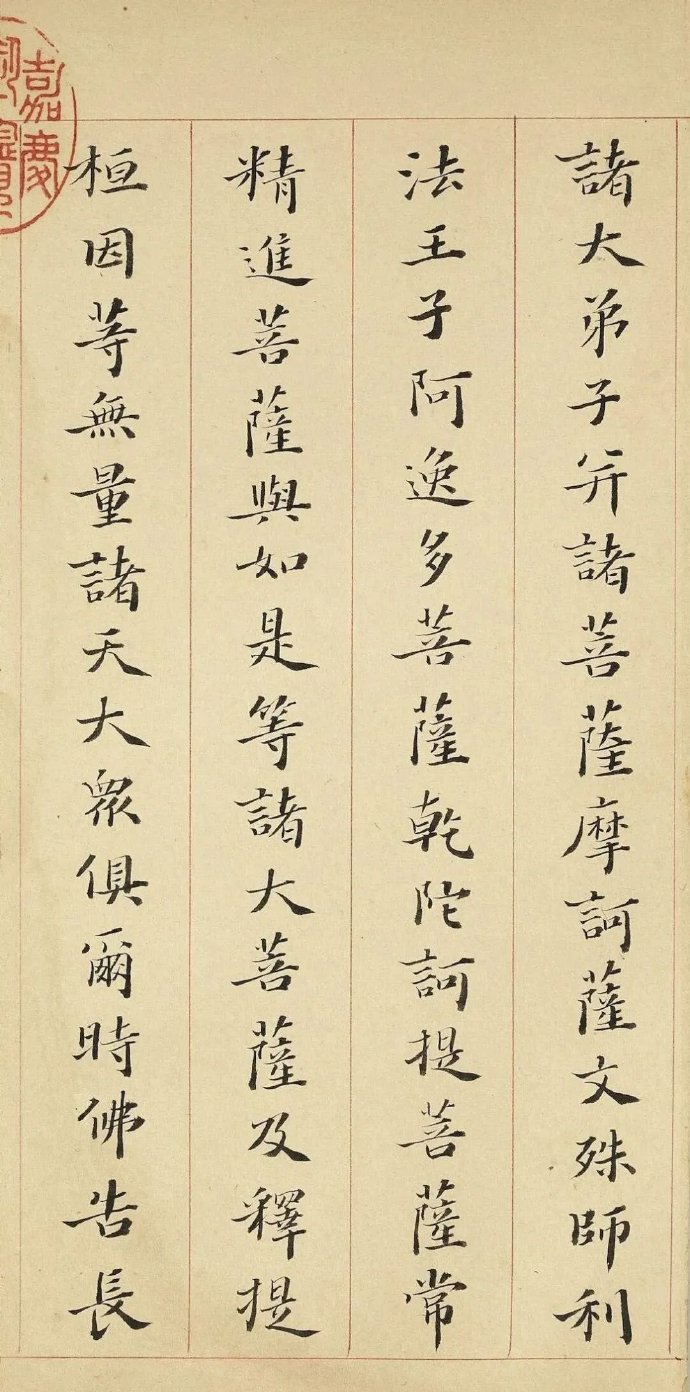 諸大弟子并諸菩薩摩訶薩文殊師利
法王子阿逸多菩薩乾陀訶提菩薩常
精進菩薩與如是等諸大菩薩及釋提
桓因等無量諸天大眾俱爾時佛告長
嘉慶